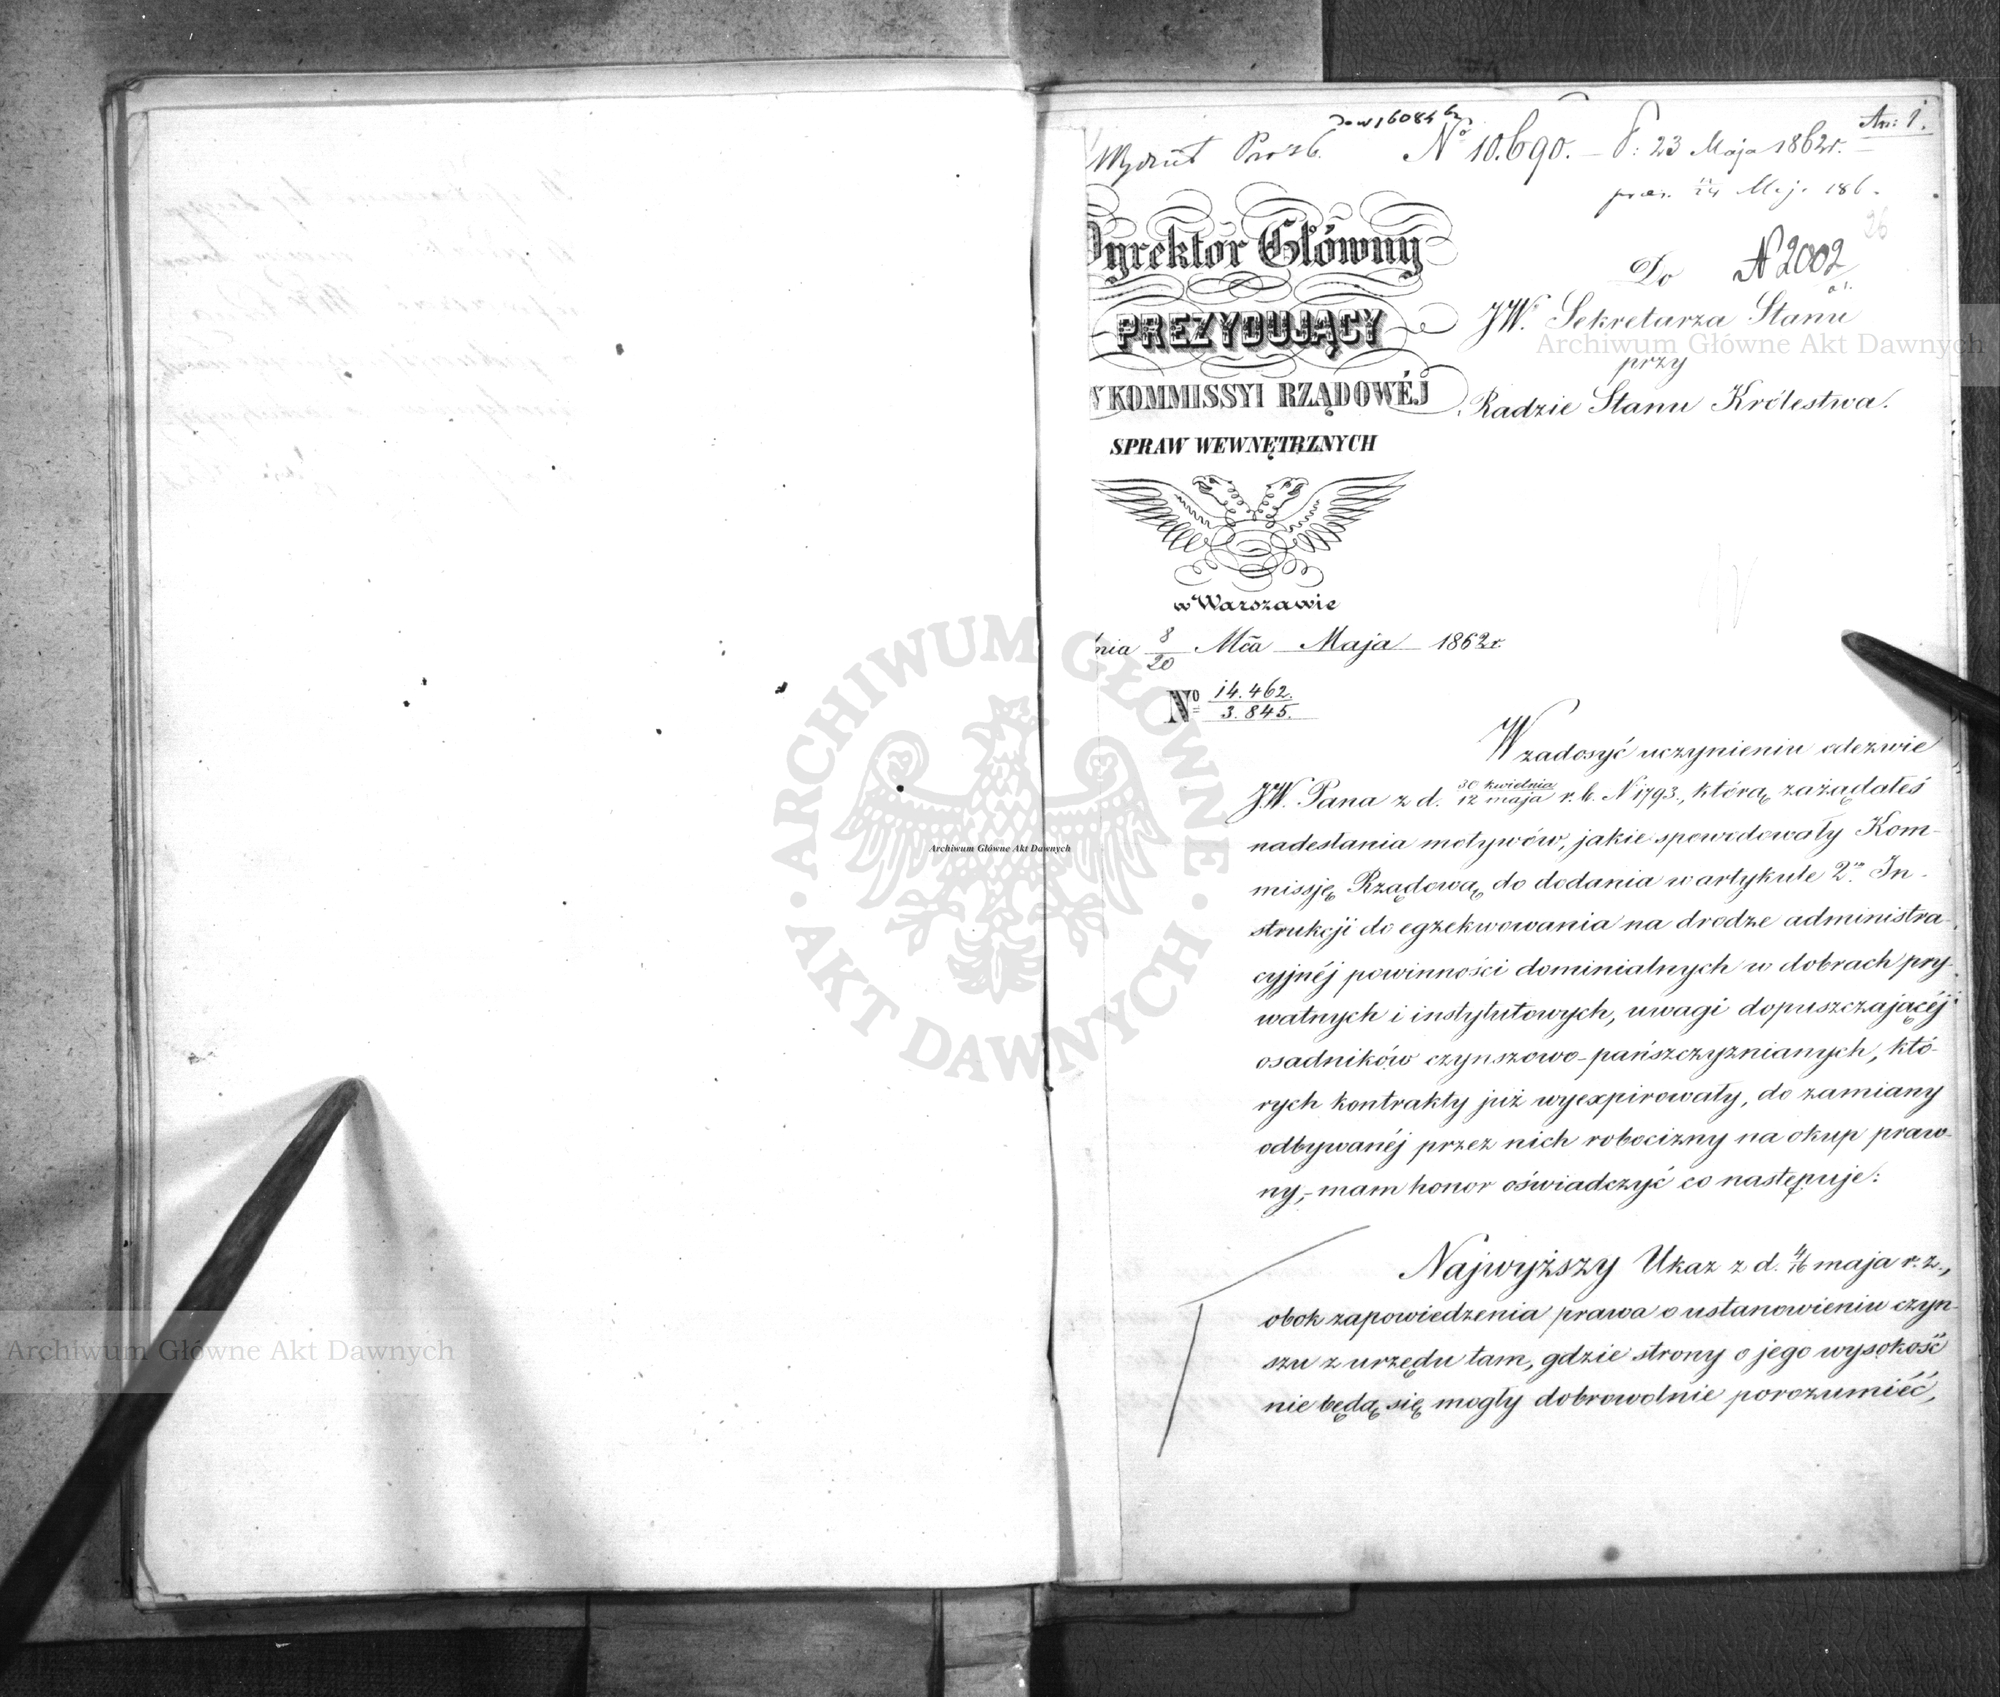 An: 1.
Wydział Proźb. No 10.690. – P: 23 Maja 1862 r.
prez. 24 Maja 186
26
Dyrektor Główny
PREZYDUJĄCY
W KOMMISSYI RZĄDOWÉJ
SPRAW WEWNĘTRZNYCH
w Warszawie
dnia 8/20 Mca Maja 1862 r.
No 14.462. / 3.845.
Do N 2002
JW. Sekretarza Stanu
przy
Radzie Stanu Królestwa.
W zadosyć uczynieniu odezwie
JW. Pana z d. 30 kwietnia / 12 maja r. b. N 1793, którą zażądałeś
nadesłania motywów, jakie spowodowały Kom-
missję Rządową do dodania w artykule 2m In-
strukcji do egzekwowania na drodze administra-
cyjnéj powinności dominialnych w dobrach pry-
watnych i instytutowych, uwagi dopuszczającéj
osadników czynszowo-pańszczyznianych, któ-
rych kontrakty już wyexpirowały, do zamiany
odbywanéj przez nich robocizny na okup praw-
ny,- mam honor oświadczyć co następuje:
Najwyższy Ukaz z d. 4/16 maja r. z.,
obok zapowiedzenia prawa o ustanowieniu czyn-
szu z urzędu tam, gdzie strony o jego wysokość
nie będą się mogły dobrowolnie porozumiéć,
Archiwum Główne Akt Dawnych
Archiwum Główne Akt Dawnych
Archiwum Główne Akt Dawnych
ARCHIWUM GŁÓWNE · AKT DAWNYCH ·